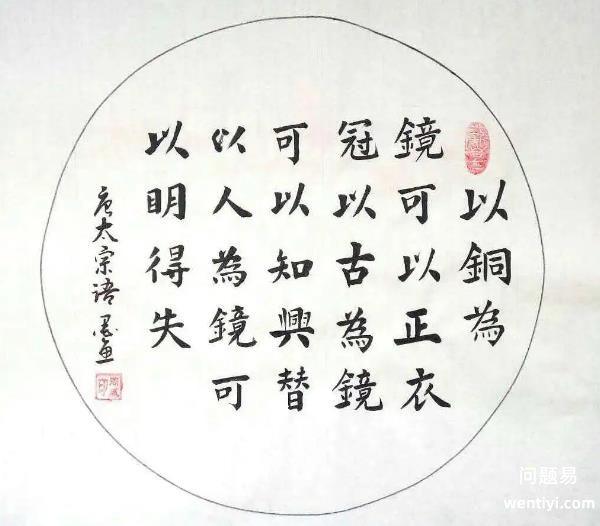 以銅為
鏡可以正衣
冠以古為鏡
可以知興替
以人為鏡可
以明得失
唐太宗語
问题易
wentiyi.com